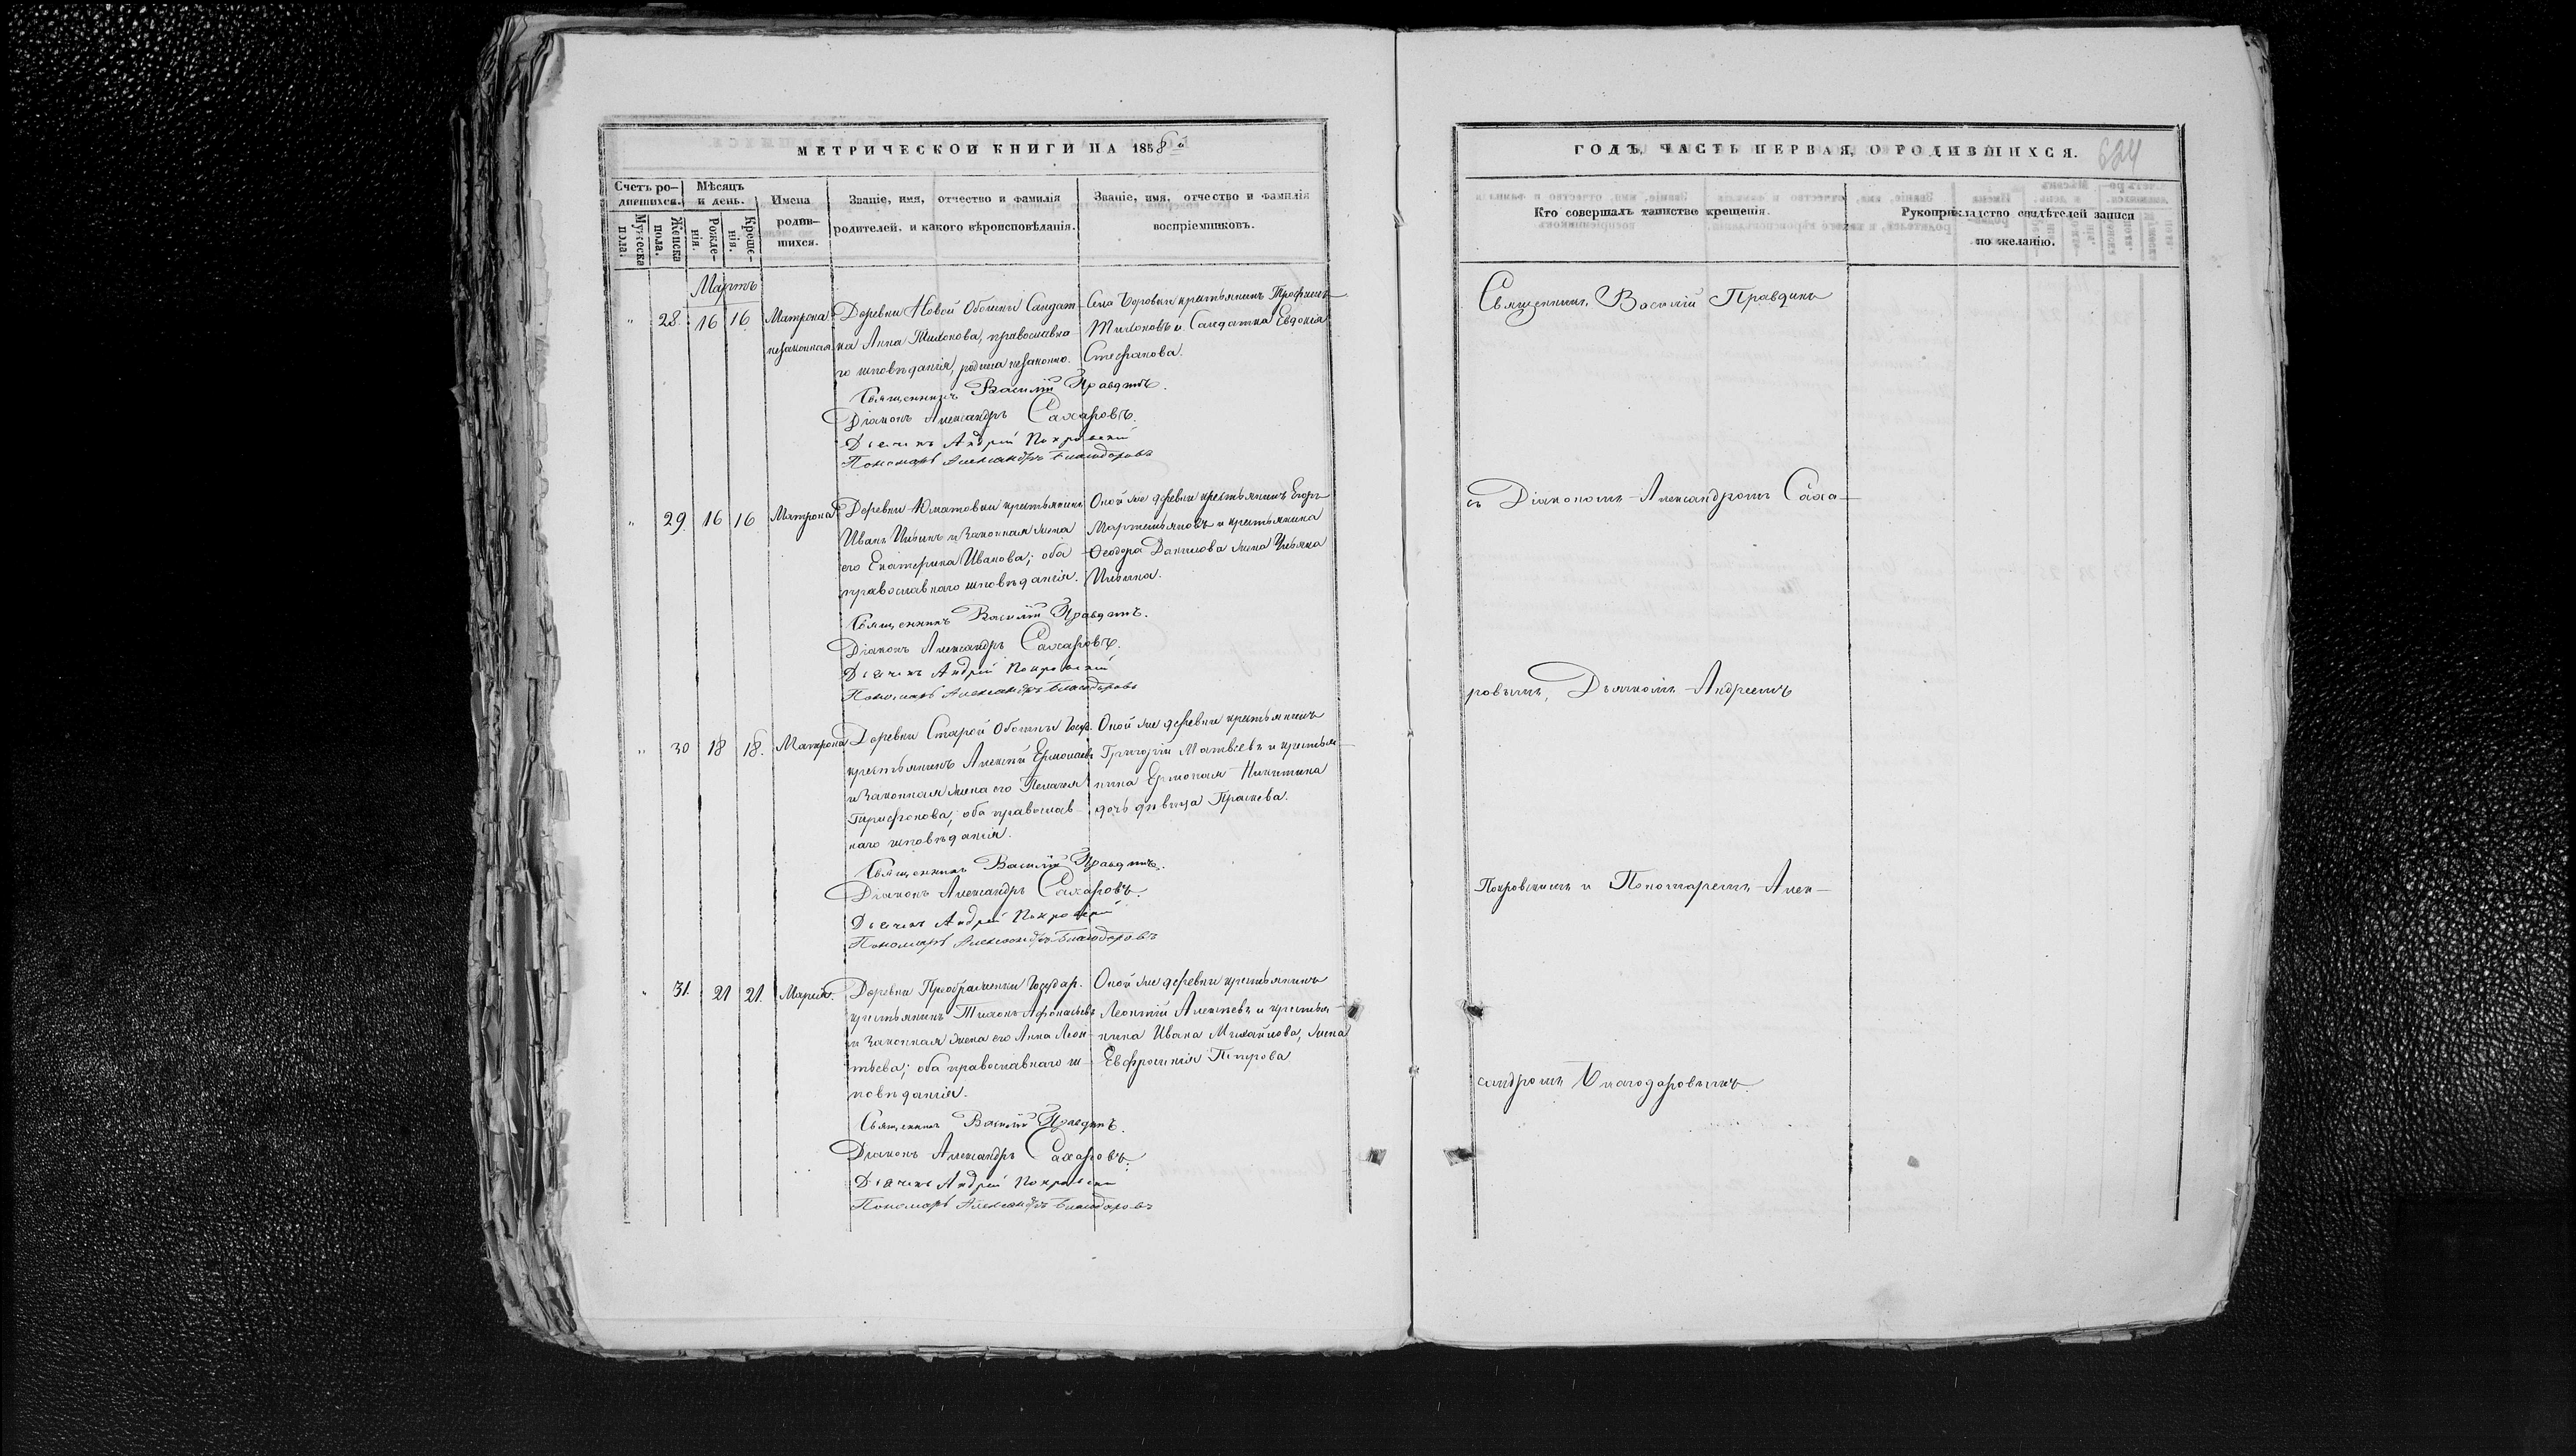 МЕТРИЧЕСКОЙ КНИГИ НА 1858й
Счетъ ро-
дившихся.
Мужеска
пола.
Женска
пола.
Мѣсяцъ
и день.
Рожде-
нія.
Креще-
нія.
Имена
родив-
шихся.
Званіе, имя, отчество и фамилія
родителей, и какого вѣроисповѣданія.
Званіе, имя, отчество и фамилія
воспріемниковъ.
Мартъ
" 28. 16 16 Матрона
незаконная
Деревни Новой Солдат-
ка Анна Тихонова, православна-
го исповѣданія, родила незаконно.
Села Боровки крестьянинъ Трофимъ
Тихоновъ и Солдатка Евдокія
Стефанова.
Священникъ Василій Правдинъ.
Діаконъ Александръ Сахаровъ.
Дьячекъ Андрей Покровскій
Пономарь Александръ Благодаровъ
" 29. 16 16 Матрона
Деревни Юматовки крестьянинъ
Иванъ Ильинъ и законная жена
его Екатерина Иванова; оба
православнаго исповѣданія.
Оной же деревни крестьянинъ Егоръ
Мартемьяновъ и крестьянина
Ѳеодора Данилова жена Ульяна
Ильина.
Священникъ Василій Правдинъ.
Діаконъ Александръ Сахаровъ.
Дьячекъ Андрей Покровскій
Пономарь Александръ Благодаровъ
" 30 18 18. Матрона
Деревни Старой Госуд.
крестьянинъ Алексѣй Ермолаевъ
и законная жена его Пелагея
Трифонова; оба православ-
наго исповѣданія.
Оной же деревни крестьянинъ
Григорій Матвѣевъ и крестья-
нина Ермолая Никитина
дочь дѣвица Праскева.
Священникъ Василій Правдинъ.
Діаконъ Александръ Сахаровъ.
Дьячекъ Андрей Покровскій
Пономарь Александръ Благодаровъ
" 31. 21 21. Марія.
Деревни Преображенки Государ.
крестьянинъ Тихонъ Афонасьевъ
и законная жена его Анна Леон-
тьева; оба православнаго ис-
повѣданія.
Оной же деревни крестьянинъ
Леонтій Алексѣевъ и крестья-
нина Ивана Михайлова, жена
Евфросинія Петрова
Священникъ Василій Правдинъ.
Діаконъ Александръ Сахаровъ.
Дьячекъ Андрей Покровскій
Пономарь Александръ Благодаровъ
ГОДЪ, ЧАСТЬ ПЕРВАЯ, О РОДИВШИХСЯ.
624
Кто совершалъ таинство крещенія.
Рукоприкладство свидѣтелей записи
по желанію.
Священникъ Василій Правдинъ
съ Діакономъ Александромъ Саха-
ровымъ, Дьячкомъ Андреемъ
Покровскимъ и Пономаремъ Алек-
сандромъ Благодаровымъ.